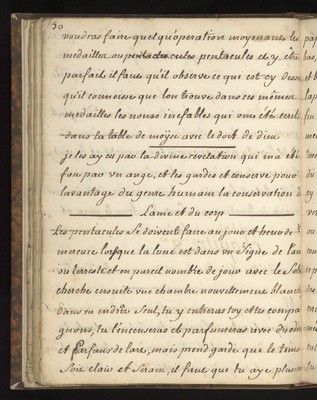 30
voudras faire quelqu'operation moyenant les
medailles ou pentacules pentacules et y être
parfait il faut qu'il observe ce qui est cy dessu
qu'il connoisse que l'on trouve dans ces mêmes
medailles les noms inefables qui ont été ecrits
dans la table de moÿse avec le doit de dieu
je les ay eu par la divine revelation qui m'a été
fait par un ange, et les gardes et conserve pour
lavantage du genre humain la conservation d
Lame et du corp
Les pentacules se doivent faire au jour et heure de
mercure lorsque la lune est dans un signe de l'air
ou terrestre et en pareil nombre de jour avec le Soleil
cherche ensuite une chambre nouvellement blanchi
dans un endroit Seul, tu y entreras toy et tes compa
gnons, tu l'encenseras et parfumeras avec
et Parfums de lare, mais prend garde que le tems
Soit clair et Serain, il faut que tu aye plusieu